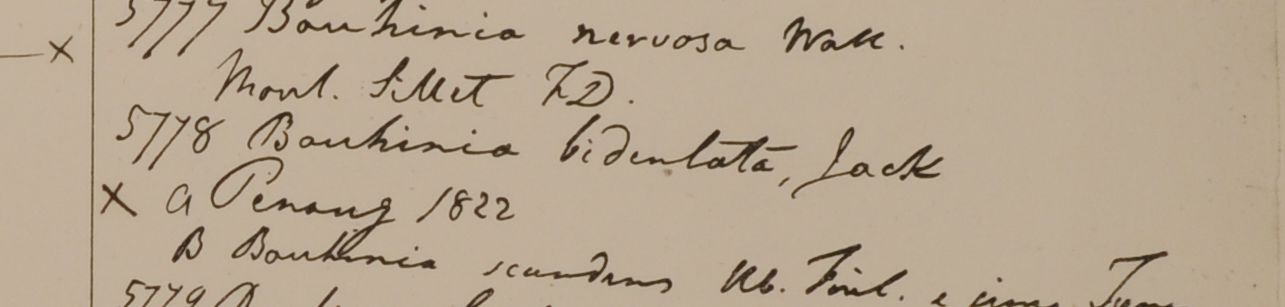 5777 Bauhinia nervosa Wall.
Mont. Sillet F.D.
5778 Bauhinia bidentata, Jack
x a Penang 1822
B Bauhinia scandens Hb. Finl.
5779